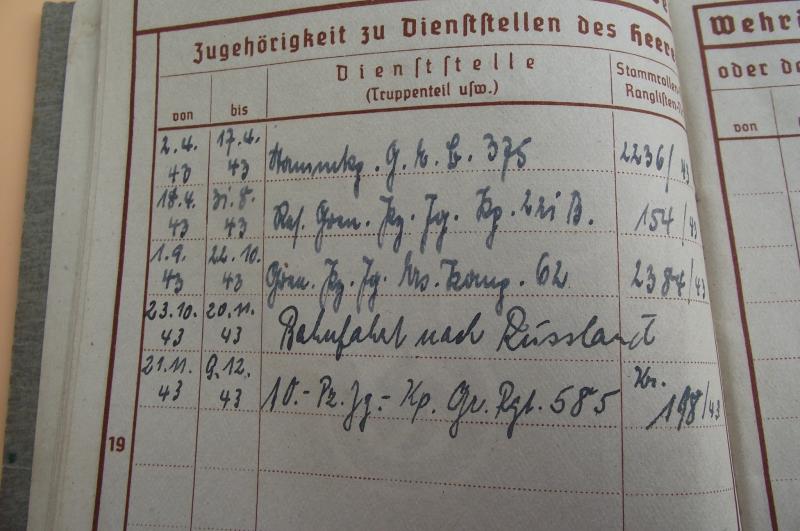 Zugehörigkeit zu Dienststellen des Heere
Wehri
Dienststelle
(Truppenteil usw.)
Stammrollen-
Ranglisten-
oder da
von
bis
von
2.4. 43 17.4. 43 Stammkp. G. E. B. 375 2236/43
18.4. 43 31.8. 43 Res. Gren. Pz. Jg. Kp. 221 B. 154/43
1.9. 43 22.10. 43 Gren. Pz. Jg. Ers. Komp. 62 2384/43
23.10. 43 20.11. 43 Bahnfahrt nach Russland
21.11. 43 9.12. 43 10.- Pz. Jg.- Kp. Gr. Rgt. 585 198/43
19